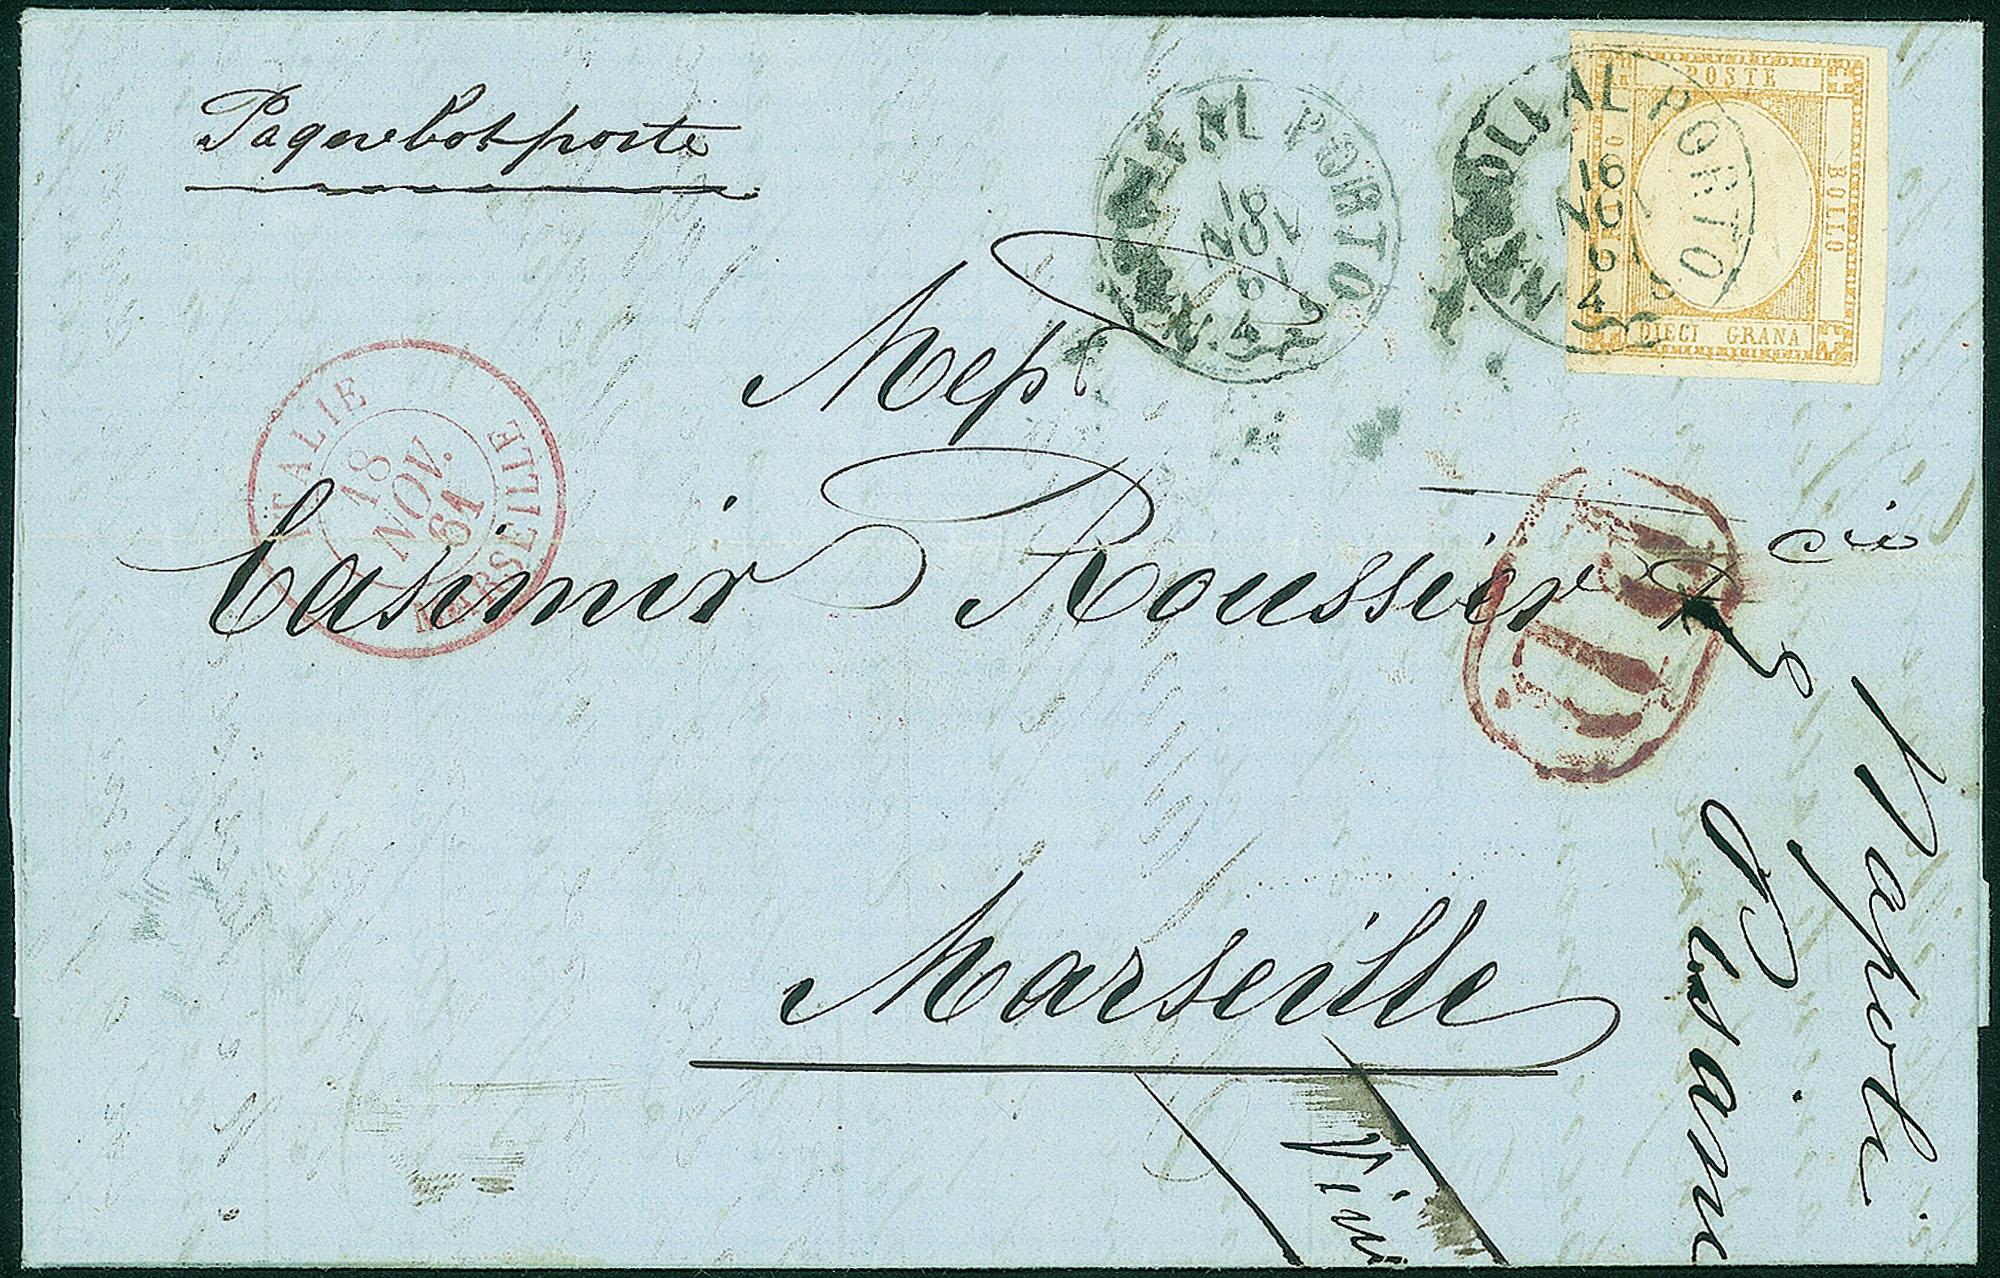 Paquebot poste
NAPOLI AL PORTO
16
NOV
61
4 S
NAPOLI AL PORTO
16
NOV
61
4 S
POSTE
BOLLO
DIECI GRANA
ITALIE
18
NOV.
61
MARSEILLE
P.D.
Mess
Casimir Roussier & Cie
Marseille
Napoli
Pisani